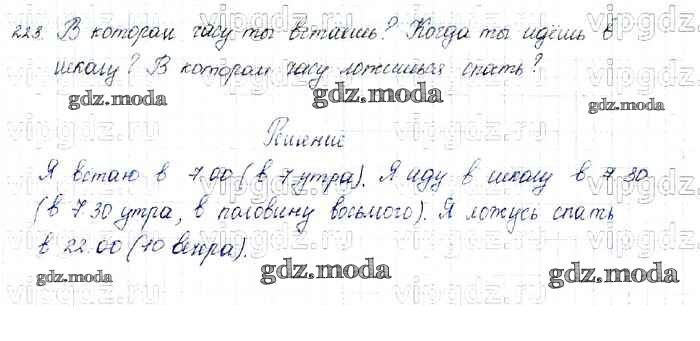 223. В котором часу ты встаёшь? Когда ты идёшь в
школу? В котором часу ложишься спать?
gdz.moda gdz.moda gdz.moda
Решение
Я встаю в 7.00 (в 7 утра). Я иду в школу в 7.30
(в 7.30 утра, в половину восьмого). Я ложусь спать
в 22.00 (10 вечера).
gdz.moda gdz.moda gdz.moda